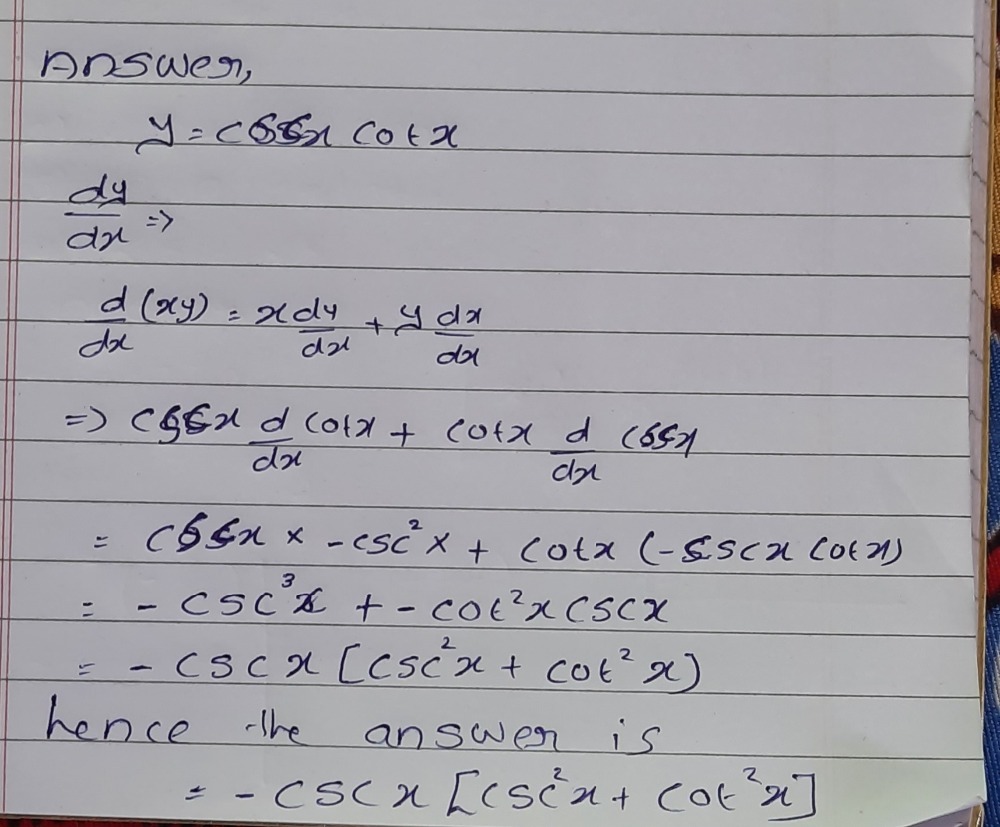 Answer,
y = cscx cotx
dy/dx =>
d/dx (xy) = x dy/dx + y dx/dx
=> cscx d/dx cotx + cotx d/dx cscx
= cscx × -csc²x + cotx (-cscx cotx)
= - csc³x + - cot²x cscx
= - cscx [csc²x + cot²x)
hence the answer is
= - cscx [csc²x + cot²x]